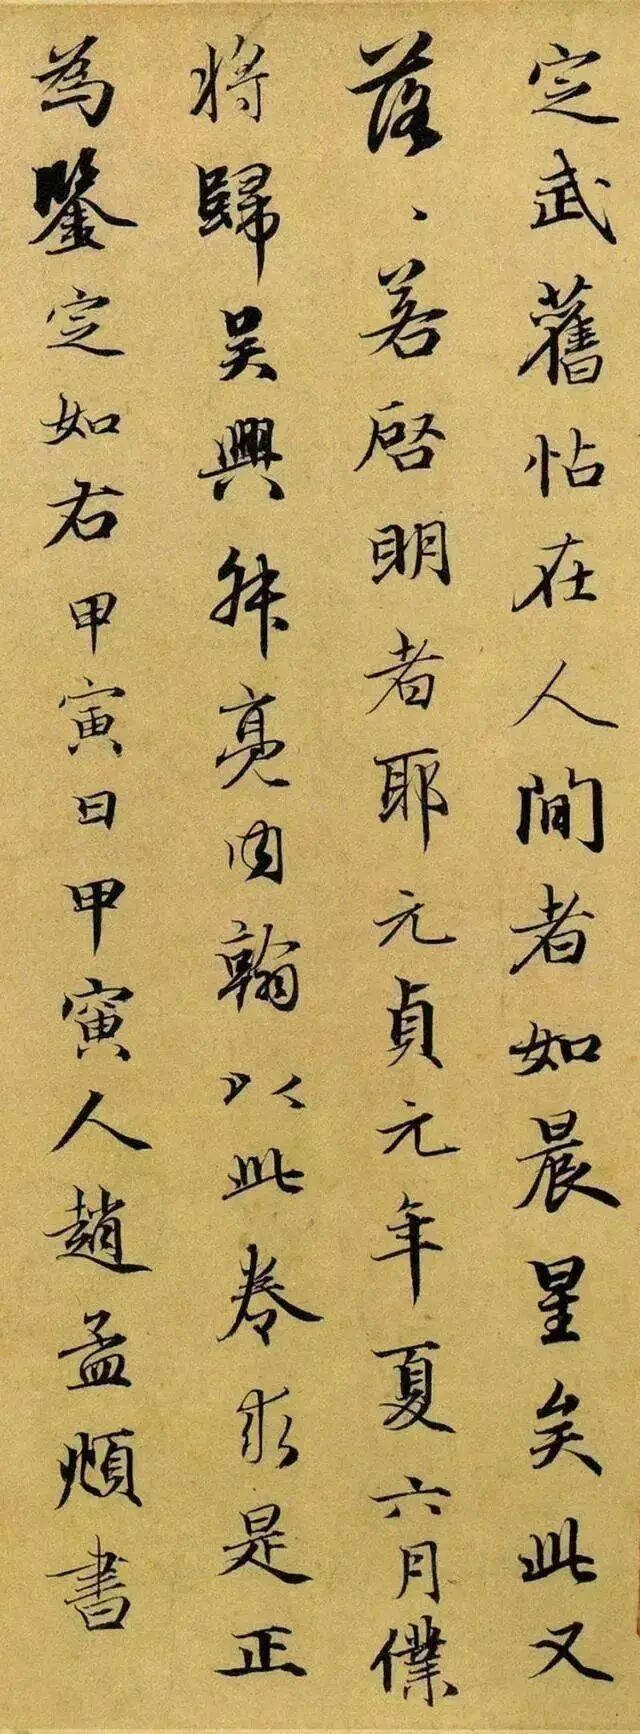 定武舊帖在人間者如晨星矣此又
落、若啓明者耶元貞元年夏六月僕
將歸吳興叔亮内翰以此卷求是正
為鑒定如右甲寅日甲寅人趙孟頫書